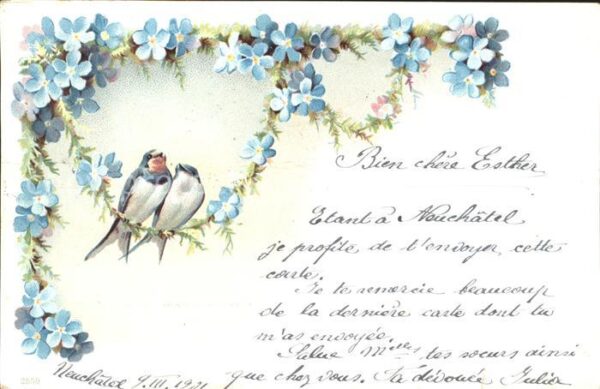 Bien chère Esther
Etant à Neuchâtel
je profite de t'envoyer cette
carte.
Je te remercie beaucoup
de la dernière carte dont tu
m'as envoyée.
Salue Melles tes soeurs ainsi
que chez vous. Ta dévouée Julia
Neuchâtel 9. III. 1901
2559